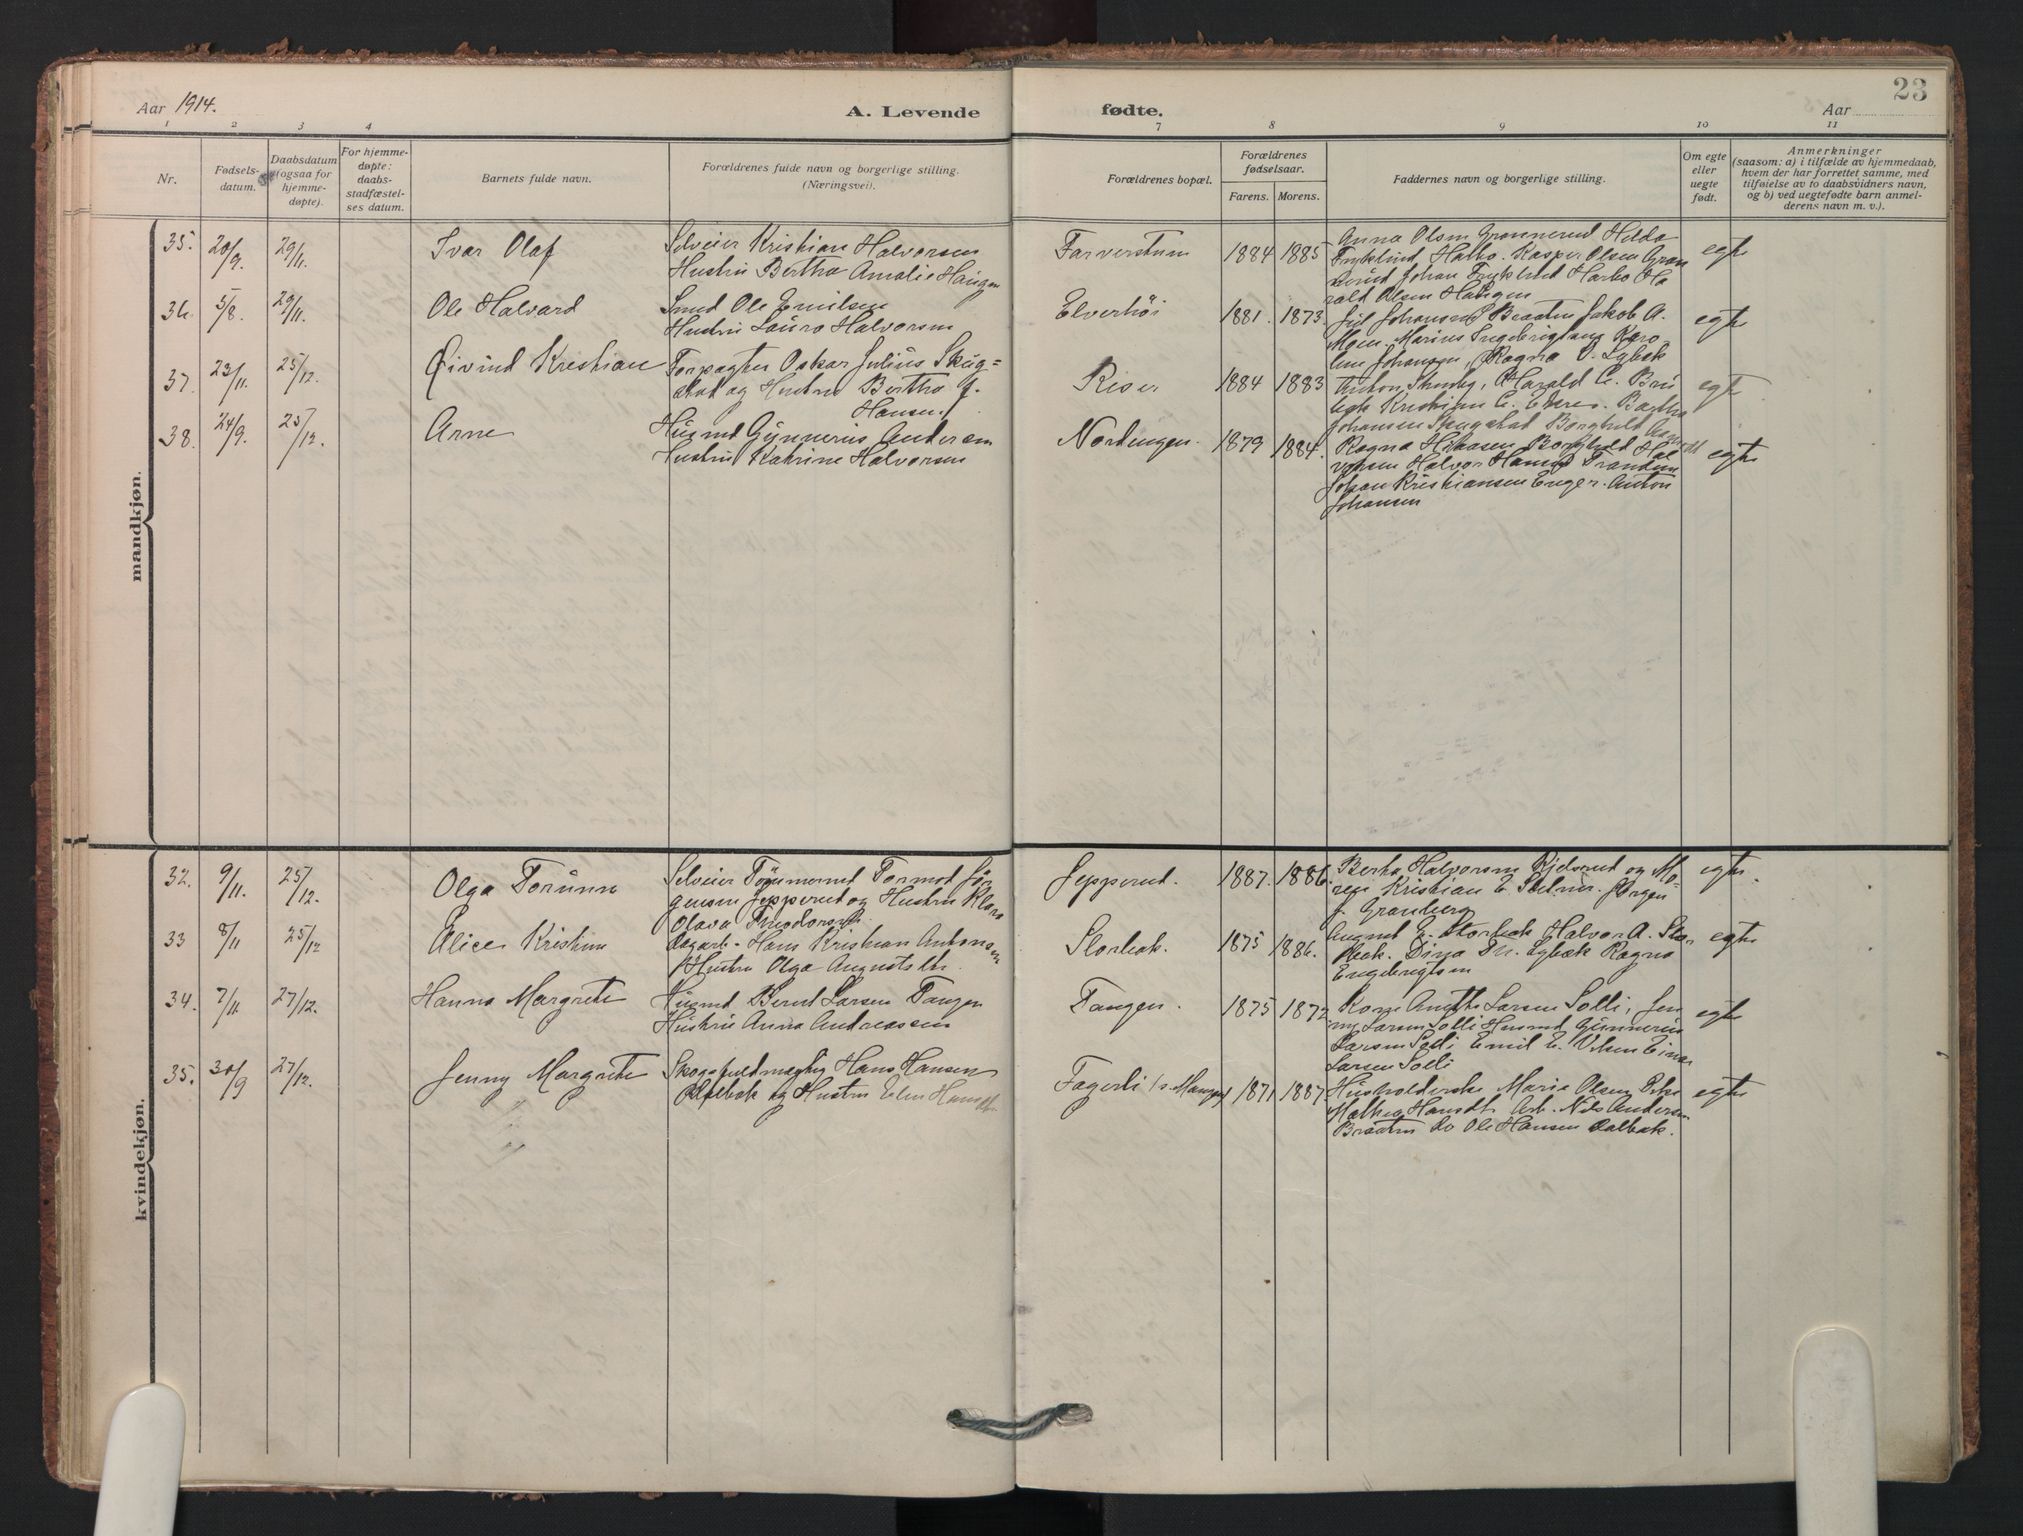 23
Aar 1914.
A. Levende fødte.
Aar
1 2 3 4 7 8 9 10 11
Nr.
Fødsels-
datum.
Daabsdatum
(ogsaa for
hjemme-
døpte).
For hjemme-
døpte:
daabs-
stadfæstel-
ses datum.
Barnets fulde navn.
Forældrenes fulde navn og borgerlige stilling.
(Næringsvei).
Forældrenes bopæl.
Forældrenes
fødselsaar.
Farens. Morens.
Faddernes navn og borgerlige stilling.
Om egte
eller
uegte
født.
Anmerkninger
(saasom: a) i tilfælde av hjemmedaab,
hvem der har forrettet samme, med
tilføielse av to daabsvidners navn,
og b) ved uegtefødte barn anmel-
derens navn m. v.).
mandkjøn.
35. 20/9. 29/11. Ivar Olaf
Selveier Kristian Halvorsen
Hustru Bertha Amalie Haugen
Farverstum 1884 1885
Anna Olsen Grønnerud Hilda
Fryklind Harbo. Kasper Olsen Grøn
nerud Johan Fryklind Harbo Ha
rald Olsen Haugen
egte
36. 5/8. 29/11. Ole Halvard
Smed Ole Emilsen
Hustru Laura Halvorsen
Elverhöi 1881. 1873.
Johansen Braaten Jakob A.
Moen. Marius Karo
line Johansen, Ragna Lybæk
egte
37. 23/11. 25/12. Øivind Kristian
Forpagter Oskar Julius Skug-
stad og Hustru Bertha J.
Hansen
Riser 1884 1883
Anton Harald C. Bru
bæk Kristian C. Bertha
Johansen Skugstad Borghild
egte
38. 24/9. 25/12. Arne
Husmd Gunnerius Andersen
Hustru Katrine Halvorsen
Nordengen. 1879 1884.
Ragna Hansen Borghild Hal
vorsen Halvor Hansen Trandum
Johan Kristiansen Enger. Anton
Johansen
egte
kvindekjøn.
32. 9/11. 25/12. Olga Torunn
Selveier Tømmermd Tormod Jør
gensen Jepperud og Hustru Klara
Olava Theodorsdt.
Jepperud. 1887. 1886.
Bertha Halvorsen Kjelsrud og
Kristian E. Jørgen
J. Granberg
egte.
33 8/11 25/12 Alice Kristine
Dagarb. Hans Kristian Antonsen
Hustru Olga Augustsdtr.
Storbæk. 1875 1886.
August E. Storbæk Halvor A. Stor
bæk. Dina M. Lybæk Ragna
Engebrigtsen
egte
34. 7/11. 27/12. Hanna Margrete
Husmd Bernt Larsen Tangen
Hustru Anna Andreassen
Tangen. 1875 1872
Kone Anette Larsen Solli, Jen
ny Larsen Solli Husmd Gunnerius
Larsen Solli Emil E. Olsen Einar
Larsen Solli
egte
35. 30/9 27/12. Jenny Margrete
Skogsfuldmægtig Hans Hansen
og Hustru Elen Hansdtr
Fagerli 1871 1887
Husholderske Marie Olsen
Mathea Hansdt. Arb. Nils Andersen
Braaten do Ole Hansen Dalbæk.
egte